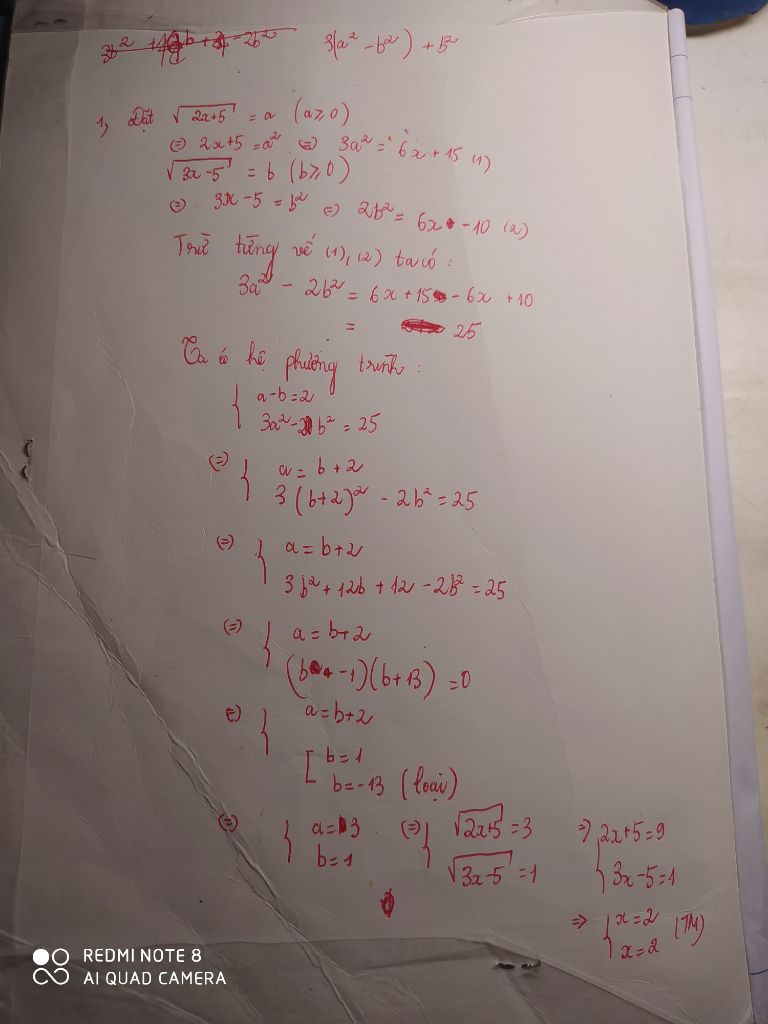 3(a² - b²) + b²
1, Đặt √(2x+5) = a (a ≥ 0)
⇔ 2x+5 = a² ⇔ 3a² = 6x + 15 (1)
√(3x-5) = b (b ≥ 0)
⇔ 3x - 5 = b² ⇔ 2b² = 6x - 10 (2)
Trừ từng vế (1), (2) ta có :
3a² - 2b² = 6x + 15 - 6x + 10
= 25
Ta có hệ phương trình :
{ a - b = 2
3a² - 2b² = 25
⇔ { a = b + 2
3(b+2)² - 2b² = 25
⇔ { a = b+2
3b² + 12b + 12 - 2b² = 25
⇔ { a = b+2
(b - 1)(b + 13) = 0
⇔ { a = b+2
[ b = 1
b = -13 (loại)
⇔ { a = 3 ⇔ { √(2x+5) = 3 ⇒ { 2x+5 = 9
b = 1 √(3x-5) = 1 3x-5 = 1
⇒ { x = 2 (TM)
x = 2
REDMI NOTE 8
AI QUAD CAMERA